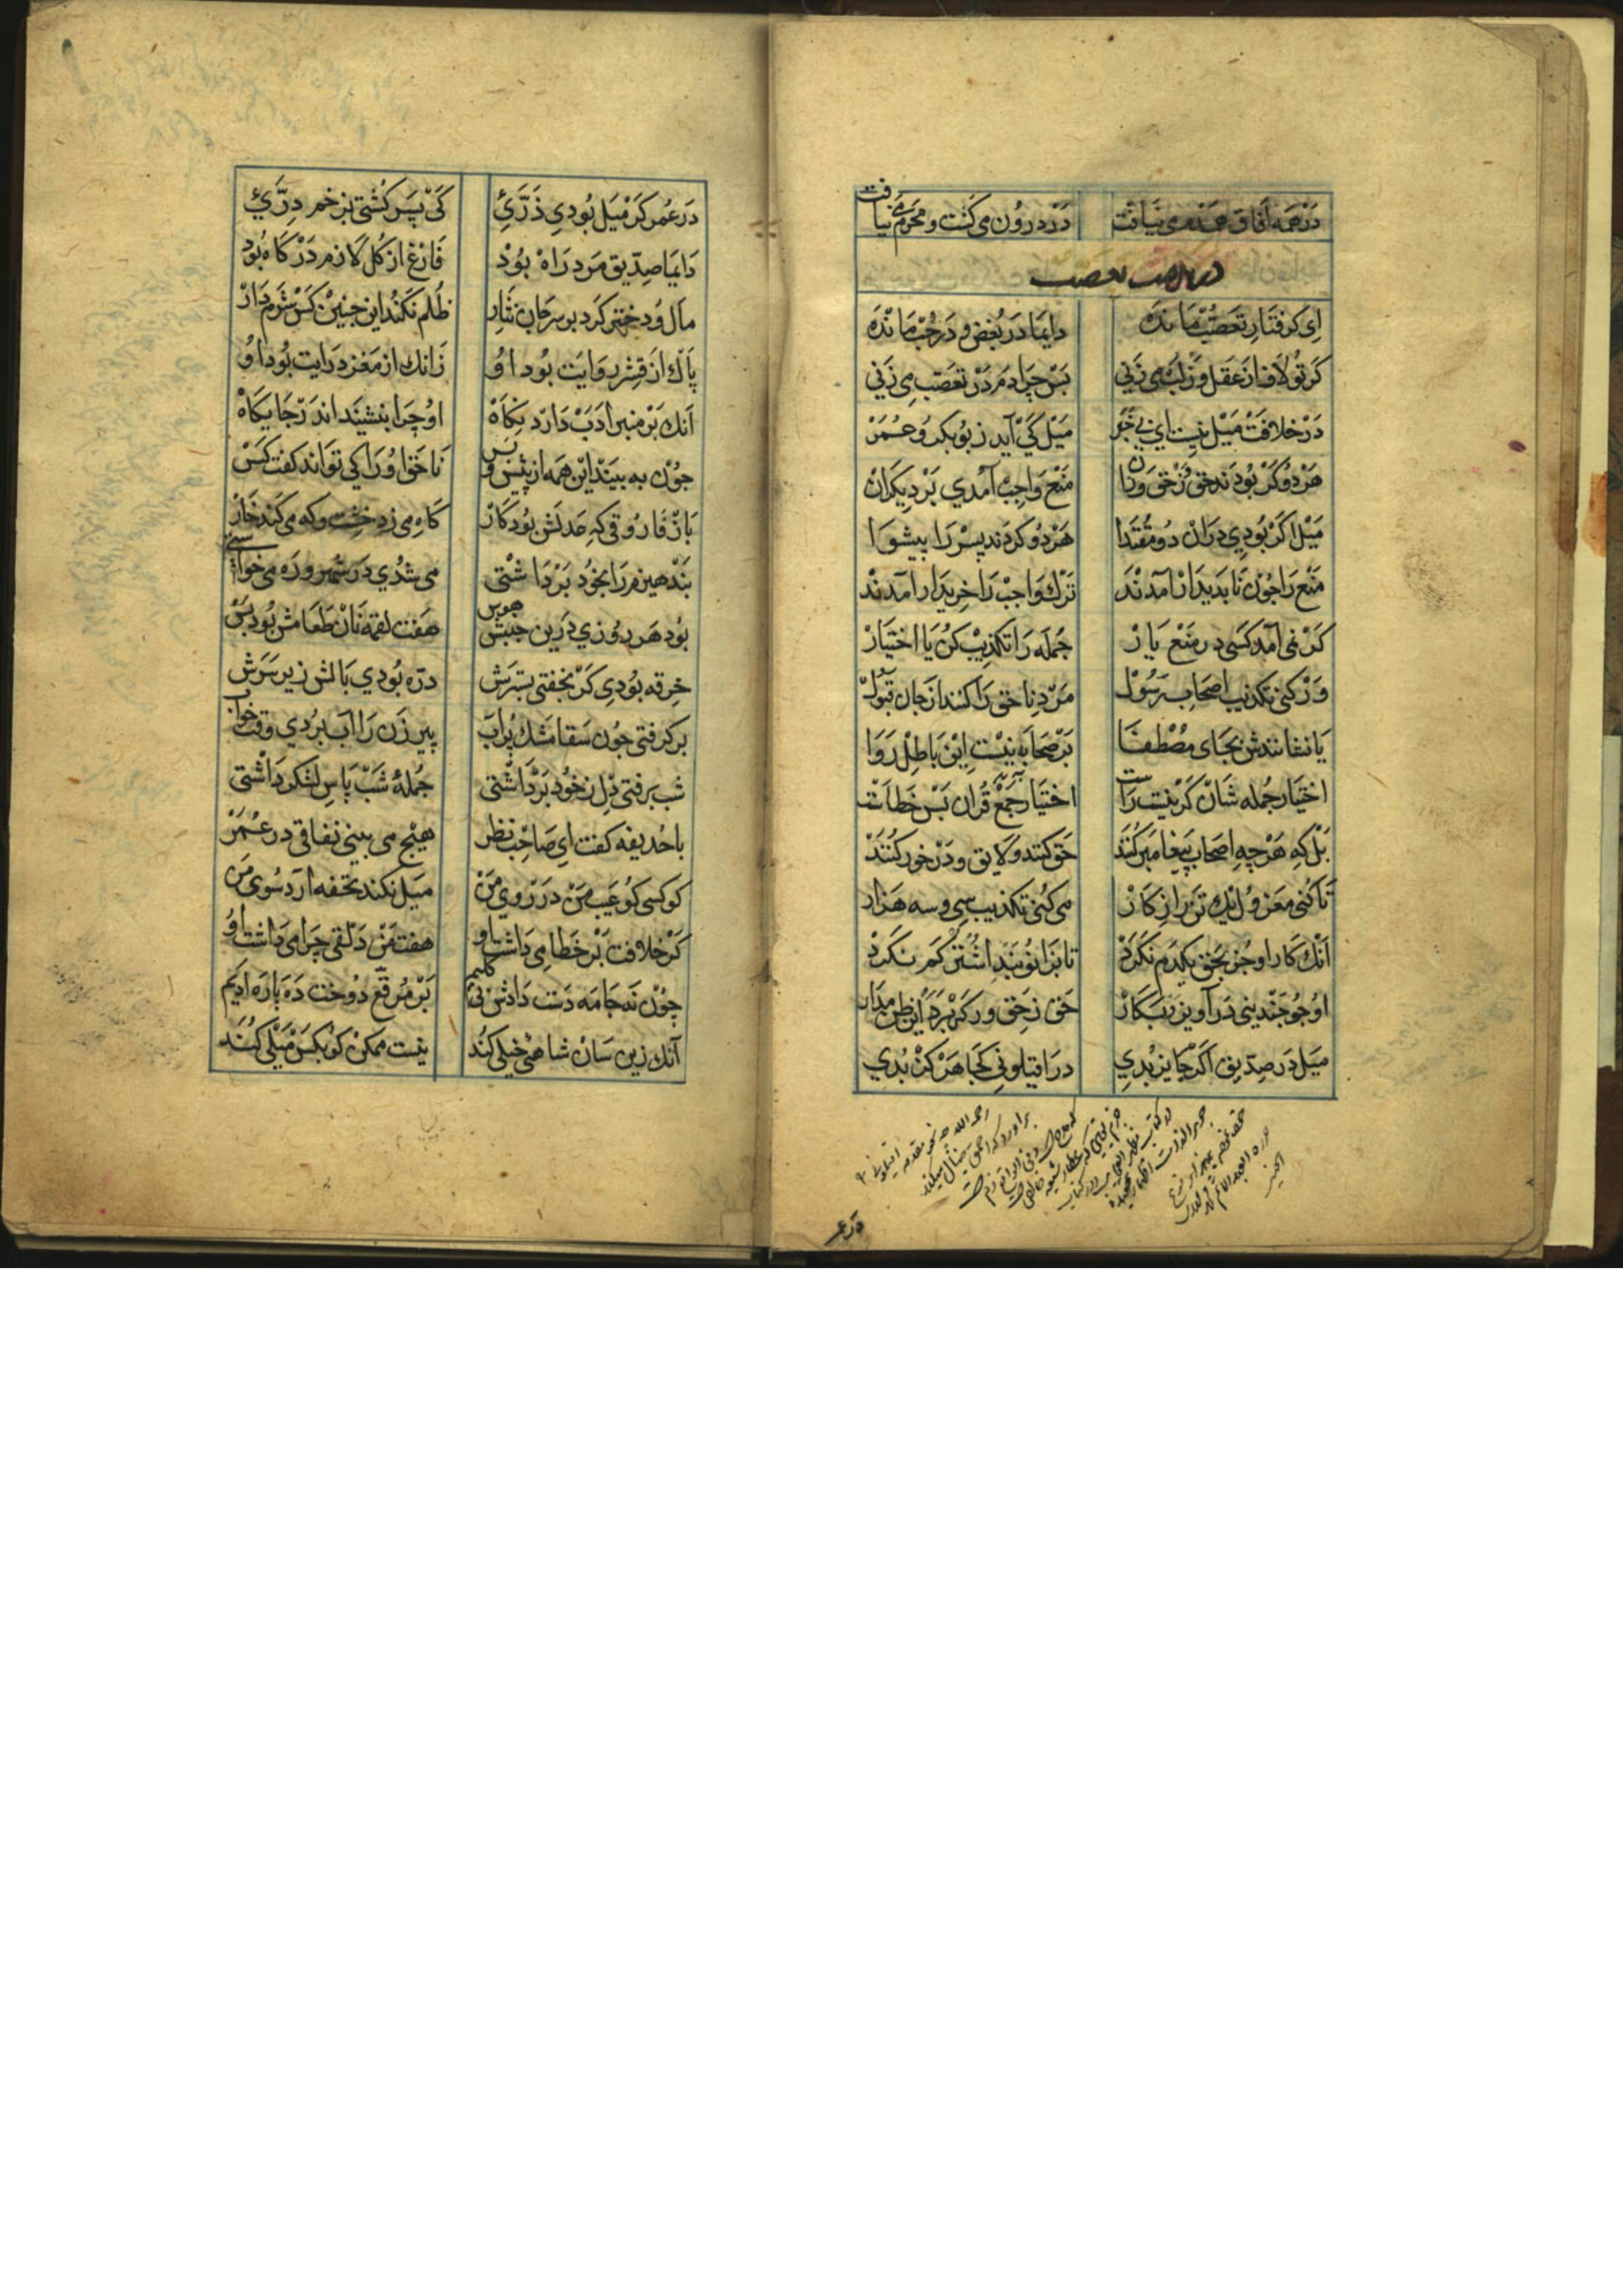 دَرْهَمه آفاق همدمی نیافت دَرْد درُون می کشت و محرمی نیافت
در مذمت تعصب
اِی کرفتارِ تعَصّب مَانده دایمَا دَر بُغض و دَر حُبّ مَانده
کرتُو لاف از عَقل وَز لُب می زَنی بَس چرَا دَم دَرْ تعَصّب می زنی
دَرْ خلافت مَیْل نیست ای بی خَبَر مَیْل کَیْ آید زبُوبکر وعُمَرْ
هَرْ دُو کَرْ بُودَند حَق زْ حَق وَران مَنْع وَاجِبْ آمَدی بَرْ دِیکرَان
مَیْل اکرْ بُودی دران دُومُقتَدا هَرْدُو کردَند پِسَرْ رَا پیشوَا
مَنع رَا جُون نَابَدیدَار آمدنْد تَرْک وَاجِبْ رَا خریَدار آمَدنْد
کَرْ نمی آمَد کسَی در مَنْع یَارْ جُملَه رَا تکذیبْ کنْ یا اختیَارْ
وَرْ کنی تکذیب اصحَابِ رَسُولْ مَرْدِ ناحق رَا کنند از جان قبُولْ
یَا نشانندش بجَای مُصْطفیَا بَرْ صَحَابَه نیْست اِیْن باطِلْ رَوَا
اختیار جُمله شَان کَر نیْست رَاست اختیَار جَمْع قُران بَس خَطَاست
بَل کِه هَرْجِه اصحَاب پیغامَبر کنند حَق کنند و لایق و دَرْخور کنند
تَا کُنی مَعزول یْک تن رَا ز کارْ می کنی تکذیب سِی و سه هَزار
آنک کار اوجُز بَحق یکدَم نَکَرْد تا بزانو بَنْد اشُتر کَم نکرْد
او جُو جَندینی دَر آویزد بکارْ حَق ز حَق وَر کَی بَرَد این ظن مدَار
میَل دَر صِدّیق اکَر جایز بُدی در اقیلونی کجَا هَرْکز بُدی
دَر عُمر
دَر عُمر کَرْ مَیل بُودی ذَرّئ کَیْ پَسَر کشتی بزخم دِرّئ
دَایمَا صِدّیق مَرد رَاه بُودْ فَارغ از کل لازم دَرکَاه بُود
مَال و دختر کَرد بر سَر جان نثَار ظُلم نَکنْد این جنین کَسْ شَرم دَارْ
پَاک از قِشْرِ روَایَت بُود اوُ زَانک از مَغز دِرَایت بُود اوُ
آنک بَرْ منبر اَدَبْ دَارَد نکَاهْ اوُ چرَا بنشیند اندَرْ جَایکَاهْ
جُوْن به بینَد ایْن هَمه از پیْش و پس نَاحَق اوُ رَا کی توَاند کفت کَسْ
بَازْ فَارُوقی که عَدلَش بُود کَارْ کَاه می زد خشت و که می کند خَارْ
بَنْد هیزم رَا بخُود بَرْدَاشتی می شدُی دَر شهر و رَه می خواستی
بُود هَر رُوزی دَرین حَبْس هوس هَفت لقمَه نَانْ طَعَامش بُود بَسْ
خِرقه بُودی کَرْ بخفتی بسترَش درّه بُودی بَالش زیر سَرَش
برکرفتی جُون سَقا مَشک پُر آبْ پیر زَن رَا آب بُردی وقت خوَاب
شب برفتی دِل زخُود بَردَاشتی جُملهُ شَب پَاسِ لشکر دَاشتی
باحُذیفه کفت ای صَاحِب نظر هیْج می بینی نفاقی در عُمَرْ
کو کسی کو عَیْب مَنْ دَر رُوی مَنْ میَل نکند تحَفه آرَد سُوی مَن
کَرْ خلافت بَر خَطا می دَاشت او هفت مَنْ دَلقی چرَا می دَاشت اوُ
چُوْن نه جَامَه دَست دَادش نی کلیم بَرْ مُرقّع دُوخت دَه پَارَه ادیَم
آنک زین سَان شاهی خیلی کُند نیْست ممکنْ کوُ بکَسْ مَیْلی کُنَد